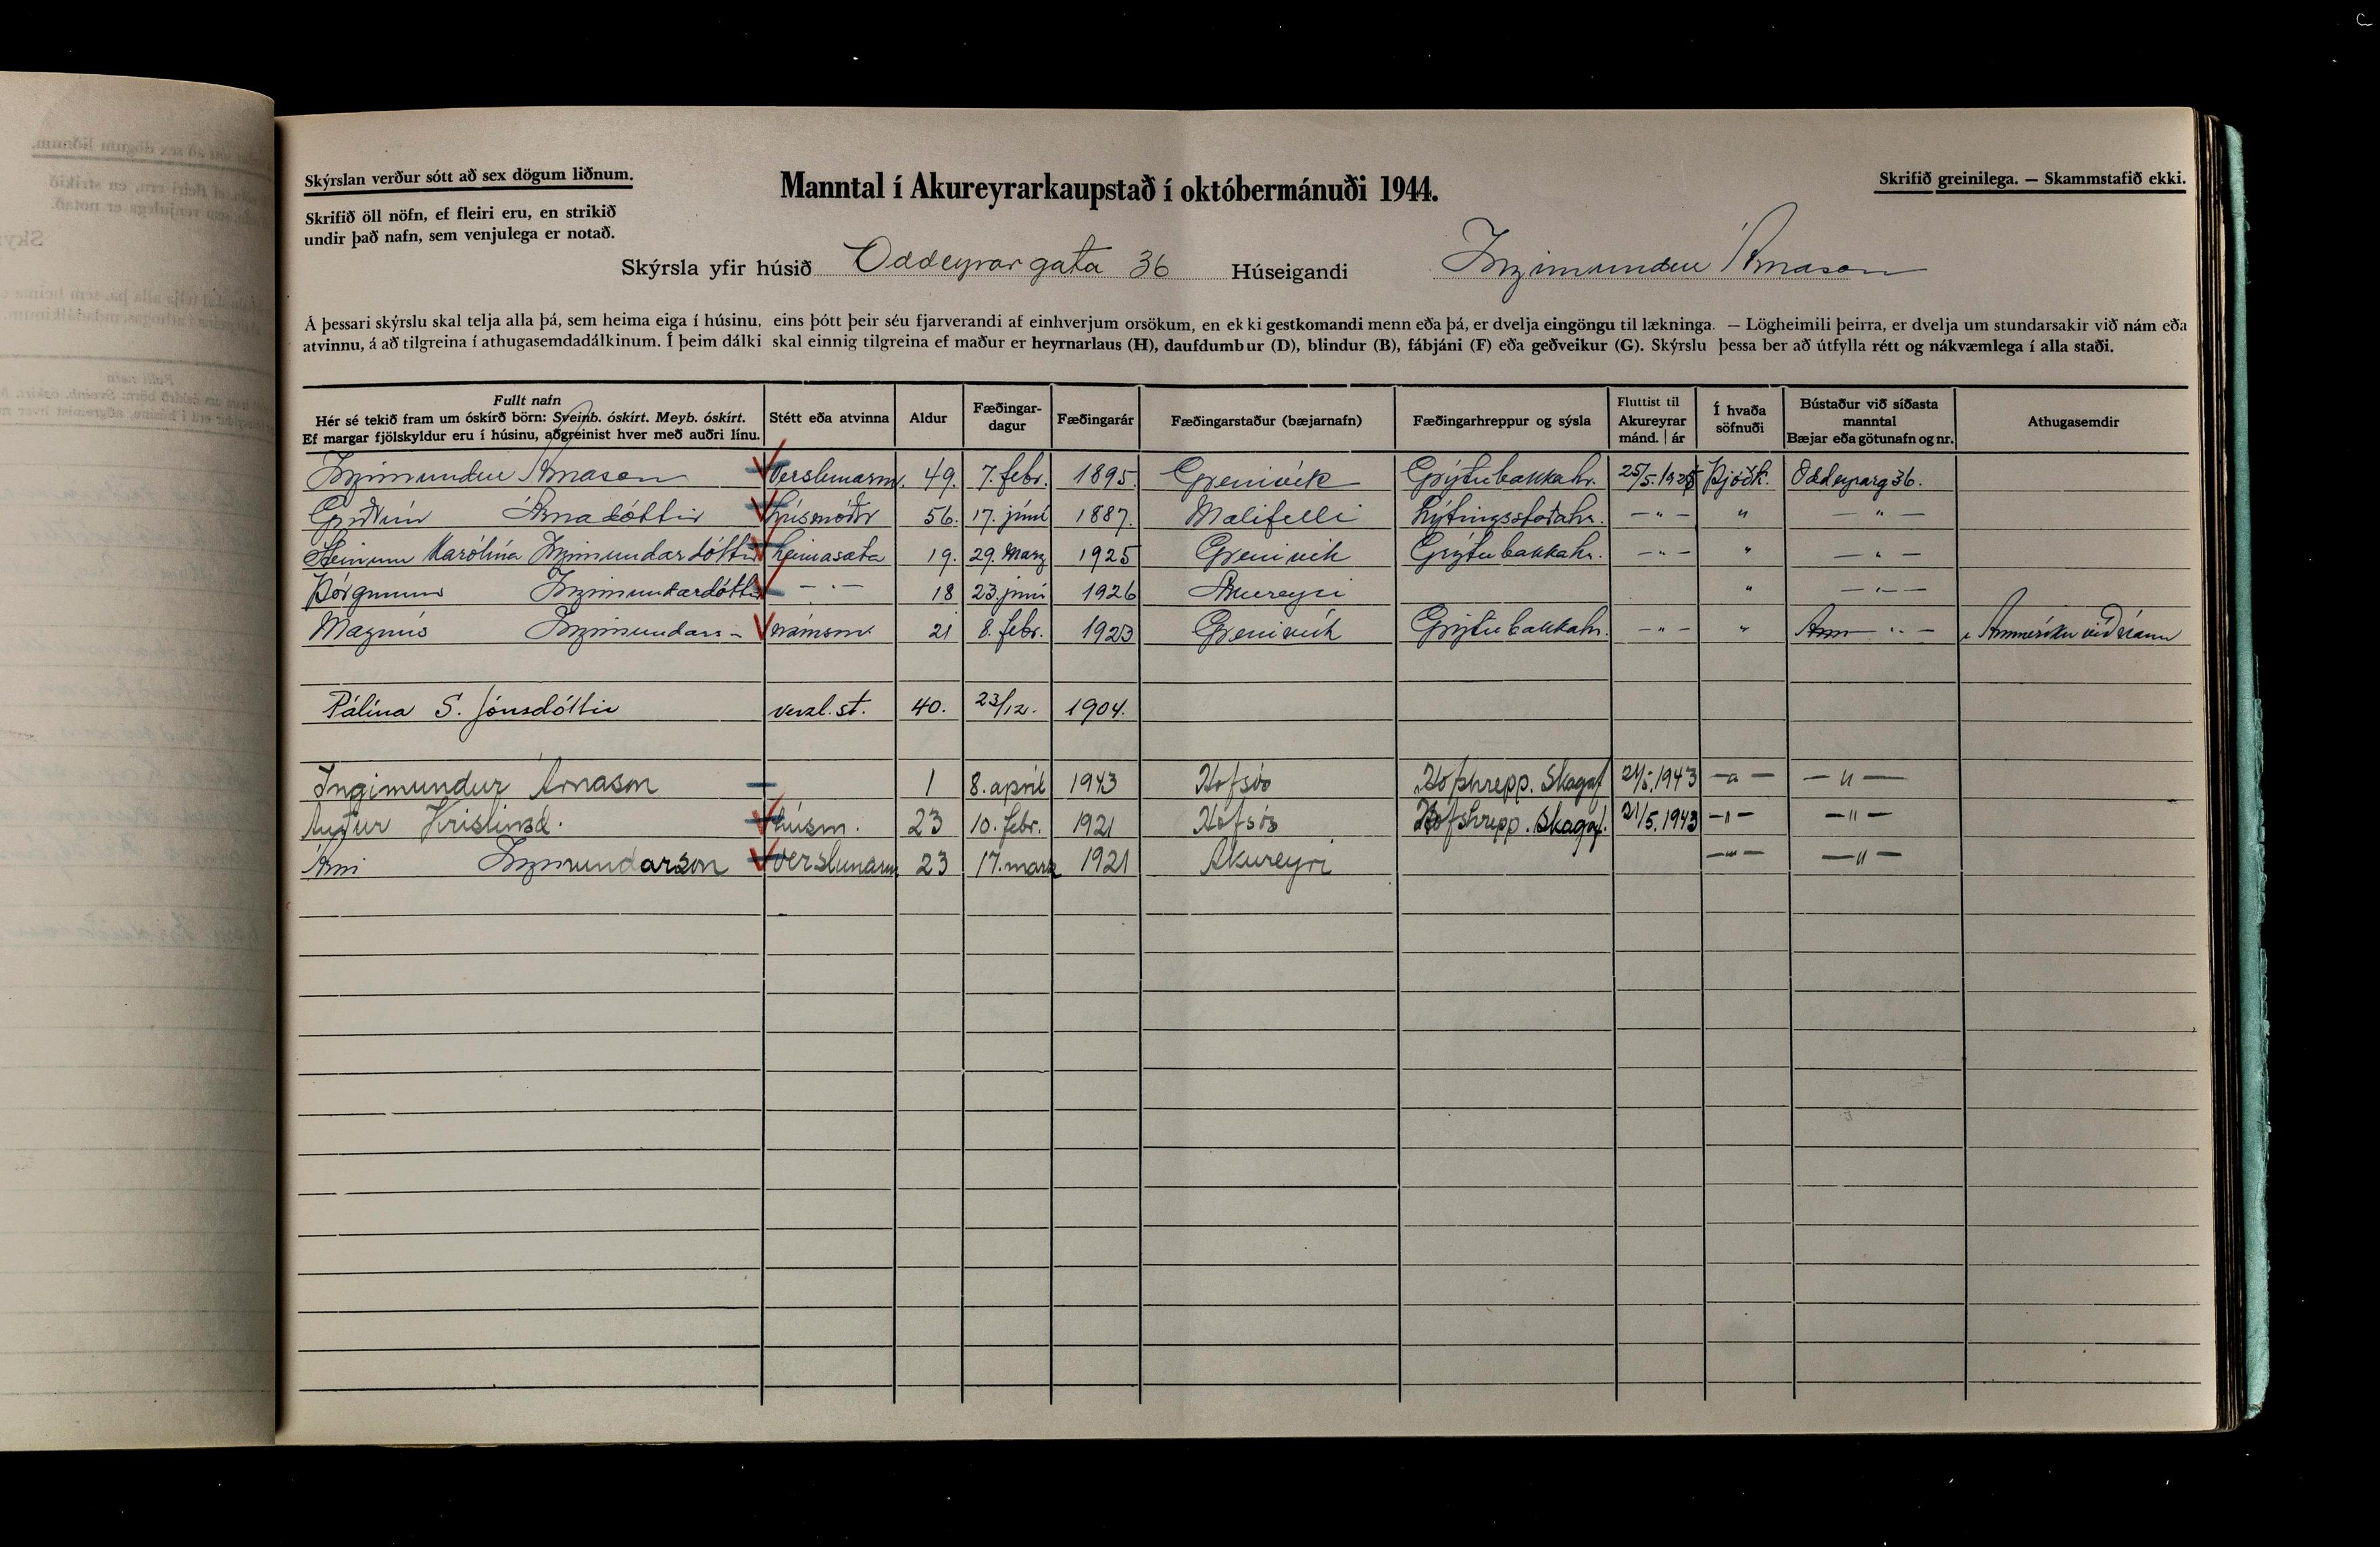 Skýrslan verður sótt að sex dögum liðnum.
Manntal í Akureyrarkaupstað í októbermánuði 1944.
Skrifið greinilega. — Skammstafið ekki.
Skrifið öll nöfn, ef fleiri eru, en strikið
undir það nafn, sem venjulega er notað.
Skýrsla yfir húsið Oddeyrargata 36 Húseigandi Ingimundur Árnason
Á þessari skýrslu skal telja alla þá, sem heima eiga í húsinu, eins þótt þeir séu fjarverandi af einhverjum orsökum, en ekki gestkomandi menn eða þá, er dvelja eingöngu til lækninga. — Lögheimili þeirra, er dvelja um stundarsakir við nám eða
atvinnu, á að tilgreina í athugasemdadálkinum. Í þeim dálki skal einnig tilgreina ef maður er heyrnarlaus (H), daufdumbur (D), blindur (B), fábjáni (F) eða geðveikur (G). Skýrslu þessa ber að útfylla rétt og nákvæmlega í alla staði.
Fullt nafn
Hér sé tekið fram um óskírð börn: Sveinb. óskírt. Meyb. óskírt.
Ef margar fjölskyldur eru í húsinu, aðgreinist hver með auðri línu.
Stétt eða atvinna
Aldur
Fæðingar-
dagur
Fæðingarár
Fæðingarstaður (bæjarnafn)
Fæðingarhreppur og sýsla
Fluttist til
Akureyrar
mánd. | ár
Í hvaða
söfnuði
Bústaður við síðasta
manntal
Bæjar eða götunafn og nr.
Athugasemdir
Ingimundur Árnason Verslunarm. 49. 7. febr. 1895. Grenivík Grýtubakkahr. 25/5. 1925 Þjóðk. Oddeyrarg 36.
Guðrún Árnadóttir húsmóðir 56. 17. júní 1887. Mælifelli Lýtingsstaðahr. — " — " — " —
Steinunn Karólína Ingimundardóttir heimasæta 19. 29. marz 1925 Grenivík Grýtubakkahr. — " — " — " —
Þórgunnur Ingimundardóttir — " — 18 23. júní 1926 Akureyri " — " —
Magnús Ingimundars - námsm. 21 8. febr. 1923 Grenivík Grýtubakkahr. — " — " — " — í Ammeríku við nám
Pálína S. Jónsdóttir verzl. st. 40. 23/12. 1904.
Ingimundur Árnason 1 8. apríl 1943 Hofsós Hofshrepp. Skagaf 21/5. 1943 — " — — " —
Auður Kristinsd. húsm. 23 10. febr. 1921 Hofsós Hofshrepp. Skagaf. 21/5. 1943 — " — — " —
Árni Ingimundarson Verslunarm 23 17. marz 1921 Akureyri — " — — " —